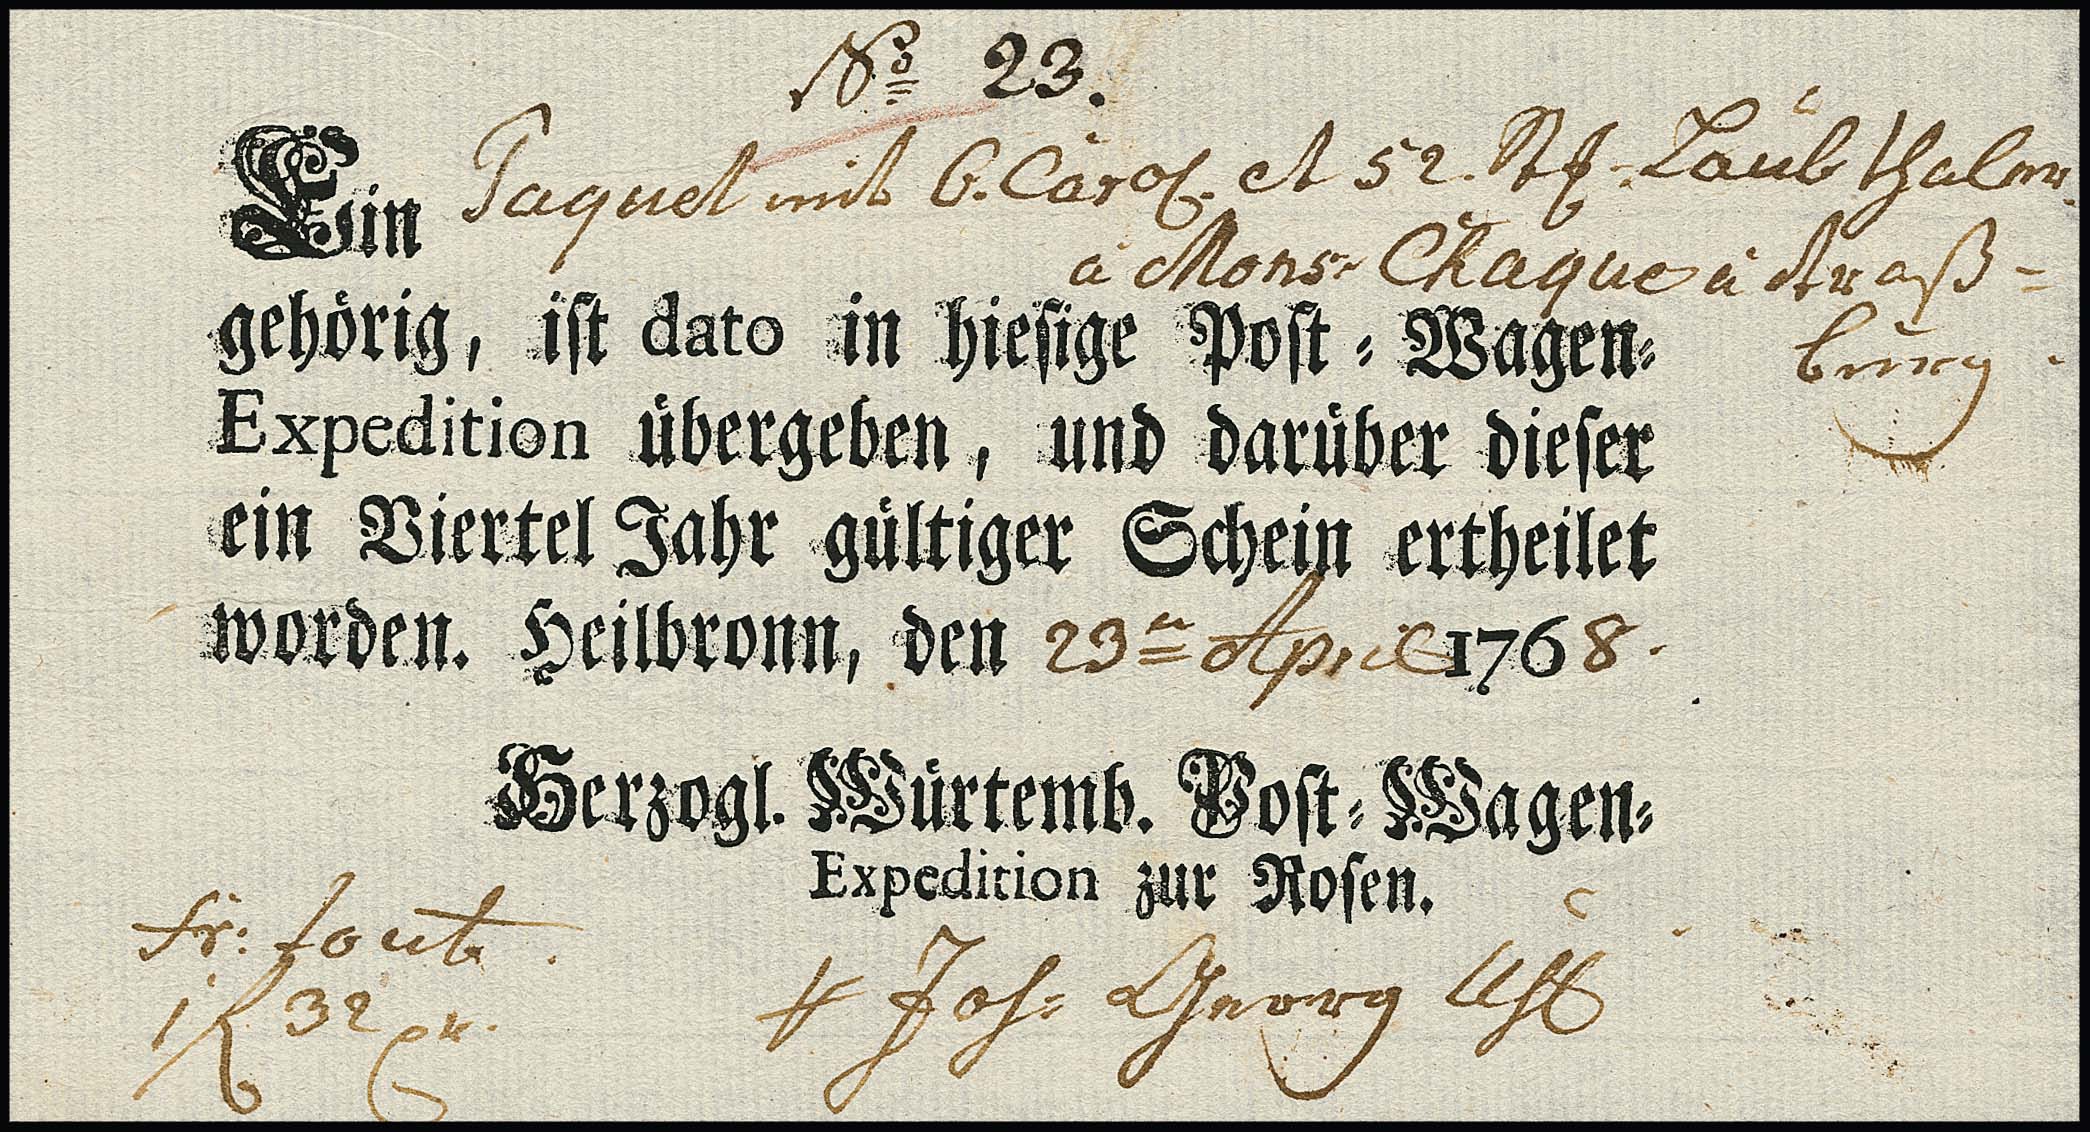 No 23.
Ein Paquet mit 6. Carol. et 52. Stk. Laubthaler
à Mons. Chaque à Straß-
burg.
gehörig, ist dato in hiesige Post-Wagen-
Expedition übergeben, und darüber dieser
ein Viertel Jahr gültiger Schein ertheilet
worden. Heilbronn, den 23ten April 1768.
Herzogl. Würtemb. Post-Wagen-
Expedition zur Rosen.
fr: tout.
1 f 32 Cr.
Joh: Georg